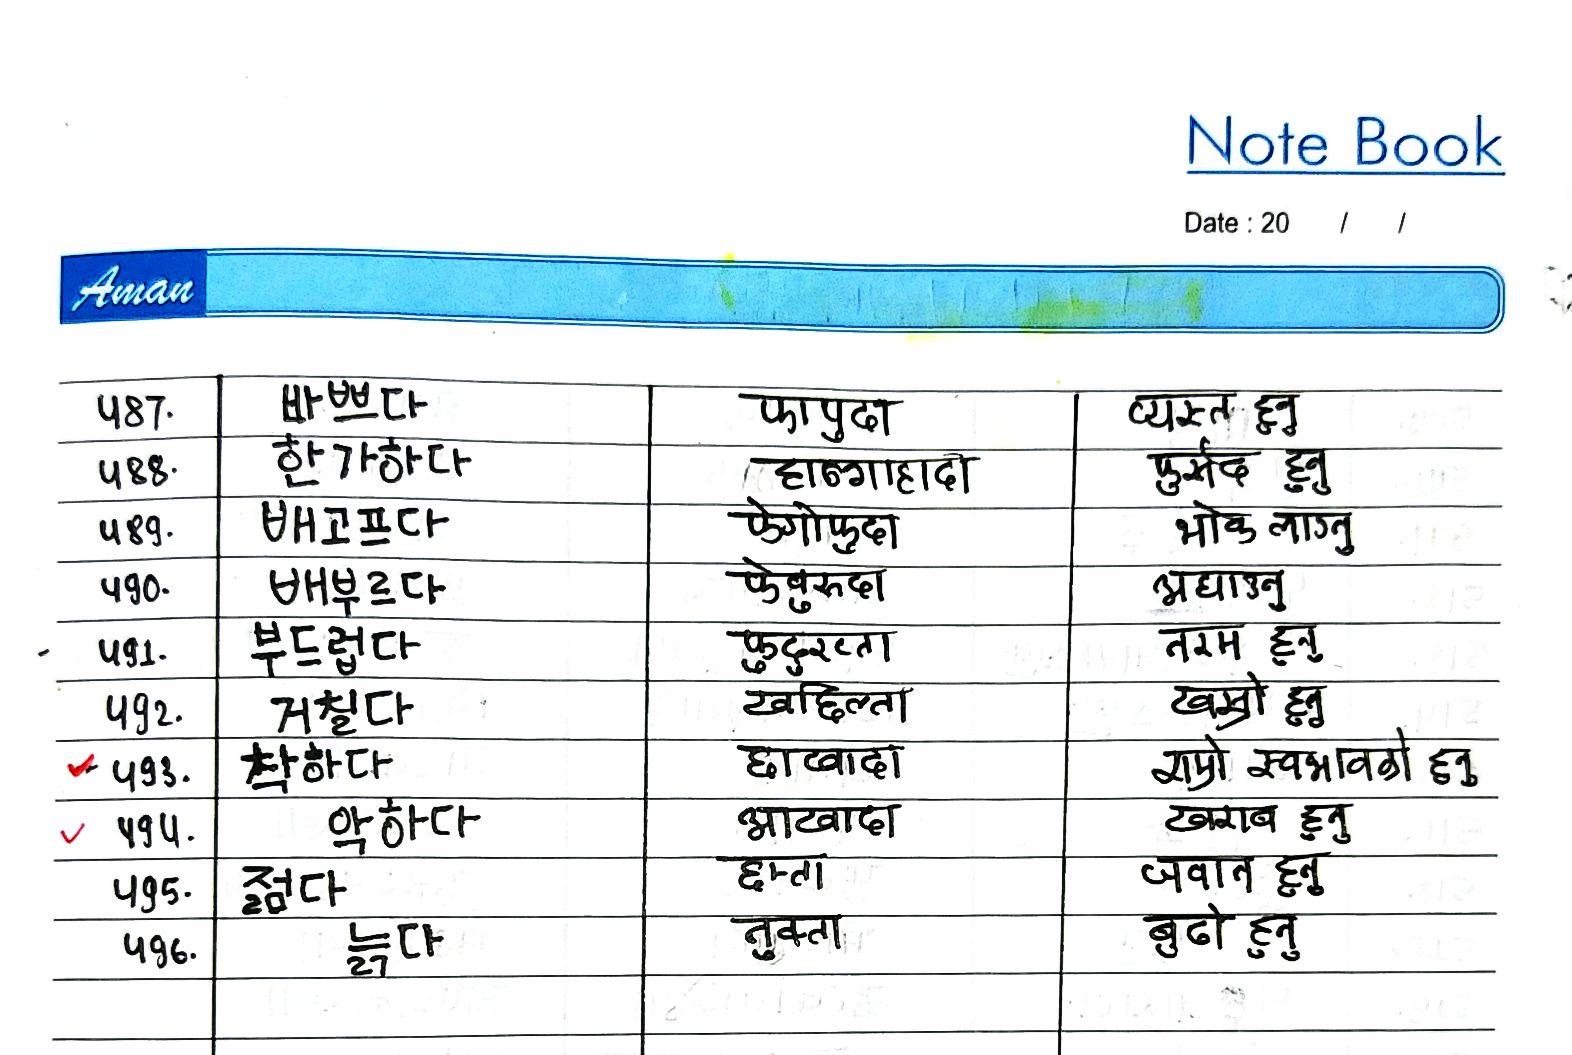 Note Book
Date : 20 / /
Aman
487. 바쁘다 फापुदा व्यस्त हुनु
488. 한가하다 हान्गाहादा फुर्सद हुनु
489. 배고프다 फेगोफुदा भोक लाग्नु
490. 배부르다 फेबुरुदा अघाउनु
491. 부드럽다 फुदुरप्ता नरम हुनु
492. 거칠다 खछिल्ता खस्रो हुनु
493. 착하다 छाखादा राम्रो स्वभावको हुनु
494. 악하다 आखादा खराब हुनु
495. 젊다 छम्ता जवान हुनु
496. 늙다 नुक्ता बुढो हुनु